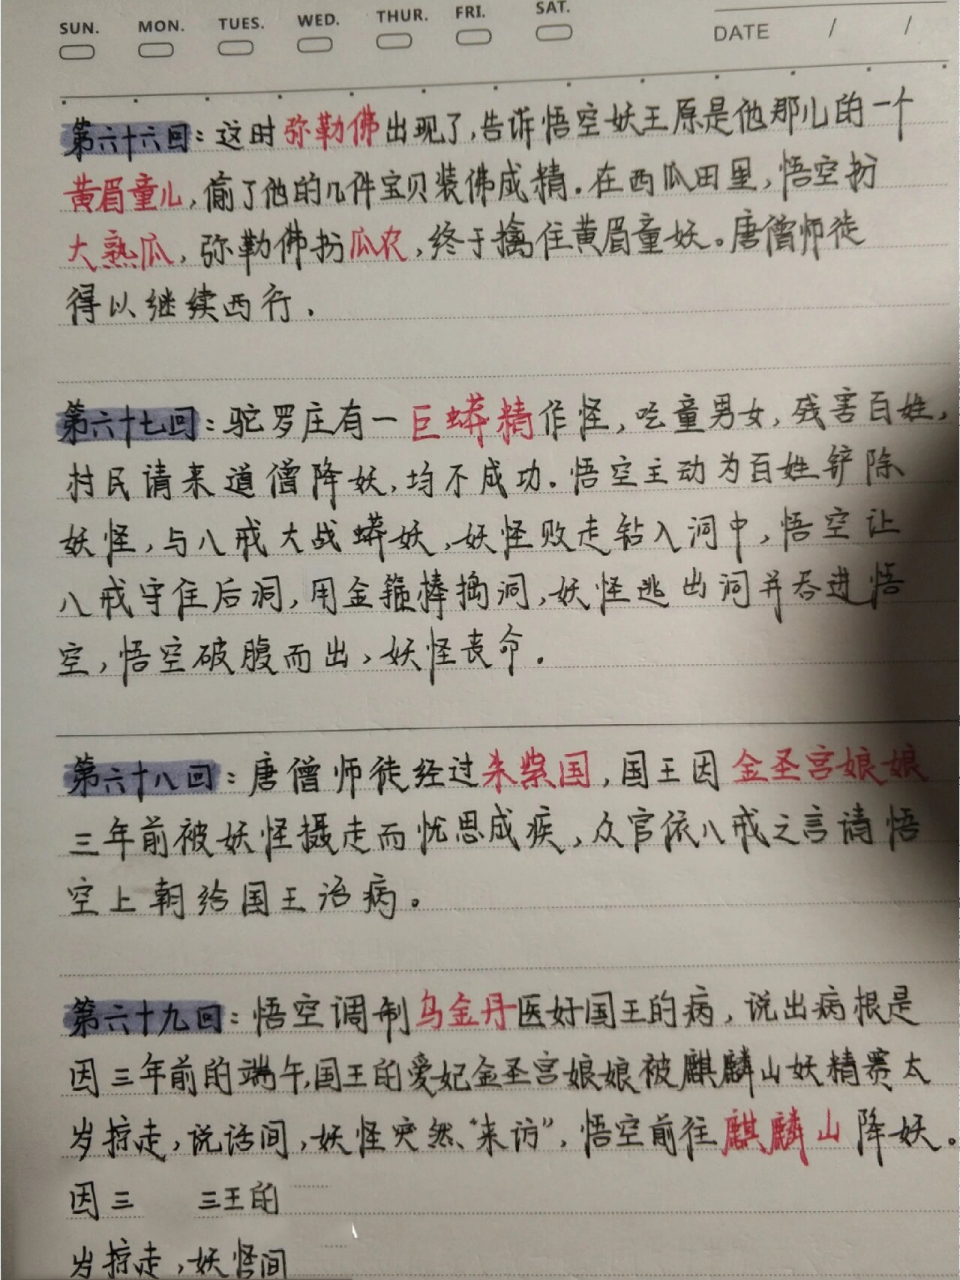 SUN. MON. TUES. WED. THUR. FRI. SAT.
DATE / /
第六十六回：这时弥勒佛出现了，告诉悟空妖王原是他那儿的一个
黄眉童儿，偷了他的几件宝贝装佛成精．在西瓜田里，悟空扮
大熟瓜，弥勒佛扮瓜农，终于擒住黄眉童妖。唐僧师徒
得以继续西行．
第六十七回：驼罗庄有一巨蟒精作怪，吃童男女，残害百姓，
村民请来道僧降妖，均不成功．悟空主动为百姓铲除
妖怪，与八戒大战蟒妖，妖怪败走钻入洞中，悟空让
八戒守住后洞，用金箍棒捣洞，妖怪逃出洞并吞进悟
空，悟空破腹而出，妖怪丧命．
第六十八回：唐僧师徒经过朱紫国，国王因金圣宫娘娘
三年前被妖怪摄走而忧思成疾，众官依八戒之言请悟
空上朝给国王治病。
第六十九回：悟空调制乌金丹医好国王的病，说出病根是
因三年前的端午，国王的爱妃金圣宫娘娘被麒麟山妖精赛太
岁掠走，说话间，妖怪突然“来访”，悟空前往麒麟山降妖。
因三 三王的
岁掠走，妖怪间